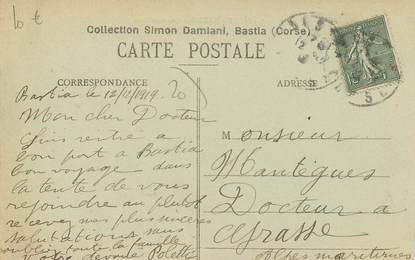 10 €
Collection Simon Damiani, Bastia (Corse)
CARTE POSTALE
CORRESPONDANCE
ADRESSE
20
Bastia le 12/12/1919
Mon cher Docteur
Suis rentré a
bon port a Bastia
bon voyage dans
la tente de vous
rejoindre au plutot
recevez nos plus sincères
salutations sans
oublier toute la famille
Votre dévoué
Monsieur
Mantègues
Docteur a
Grasse
Alpes maritimes